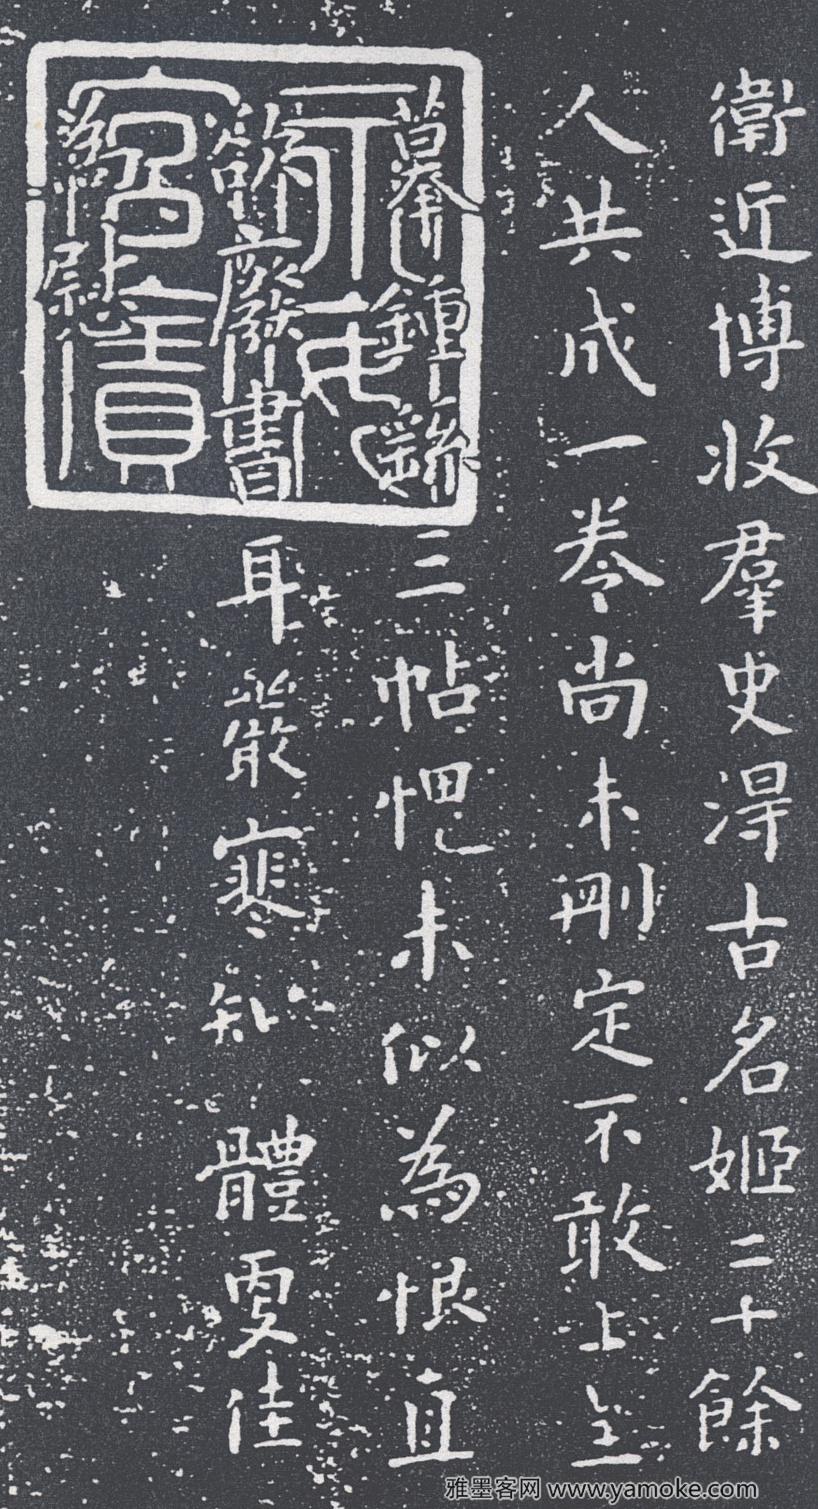 衛近博收羣史淂古名姬二十餘
人共成一卷尚未刪定不敢上呈
摹鍾繇三帖愧未似為恨直
欲廢書耳嚴寒知 體更佳
為慰
雅墨客网 www.yamoke.com